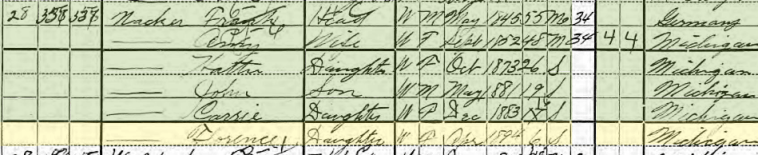 28 358 358 Nacker Frank Head W M May 1845 55 M 34 Germany
— Amy Wife W F Sept 1852 48 M 34 4 4 Michigan
— Hattie Daughter W F Oct 1873 26 S Michigan
— John Son W M May 1881 19 S Michigan
— Carrie Daughter W F Dec 1883 16 S Michigan
— Florence Daughter W F 1894 6 S Michigan